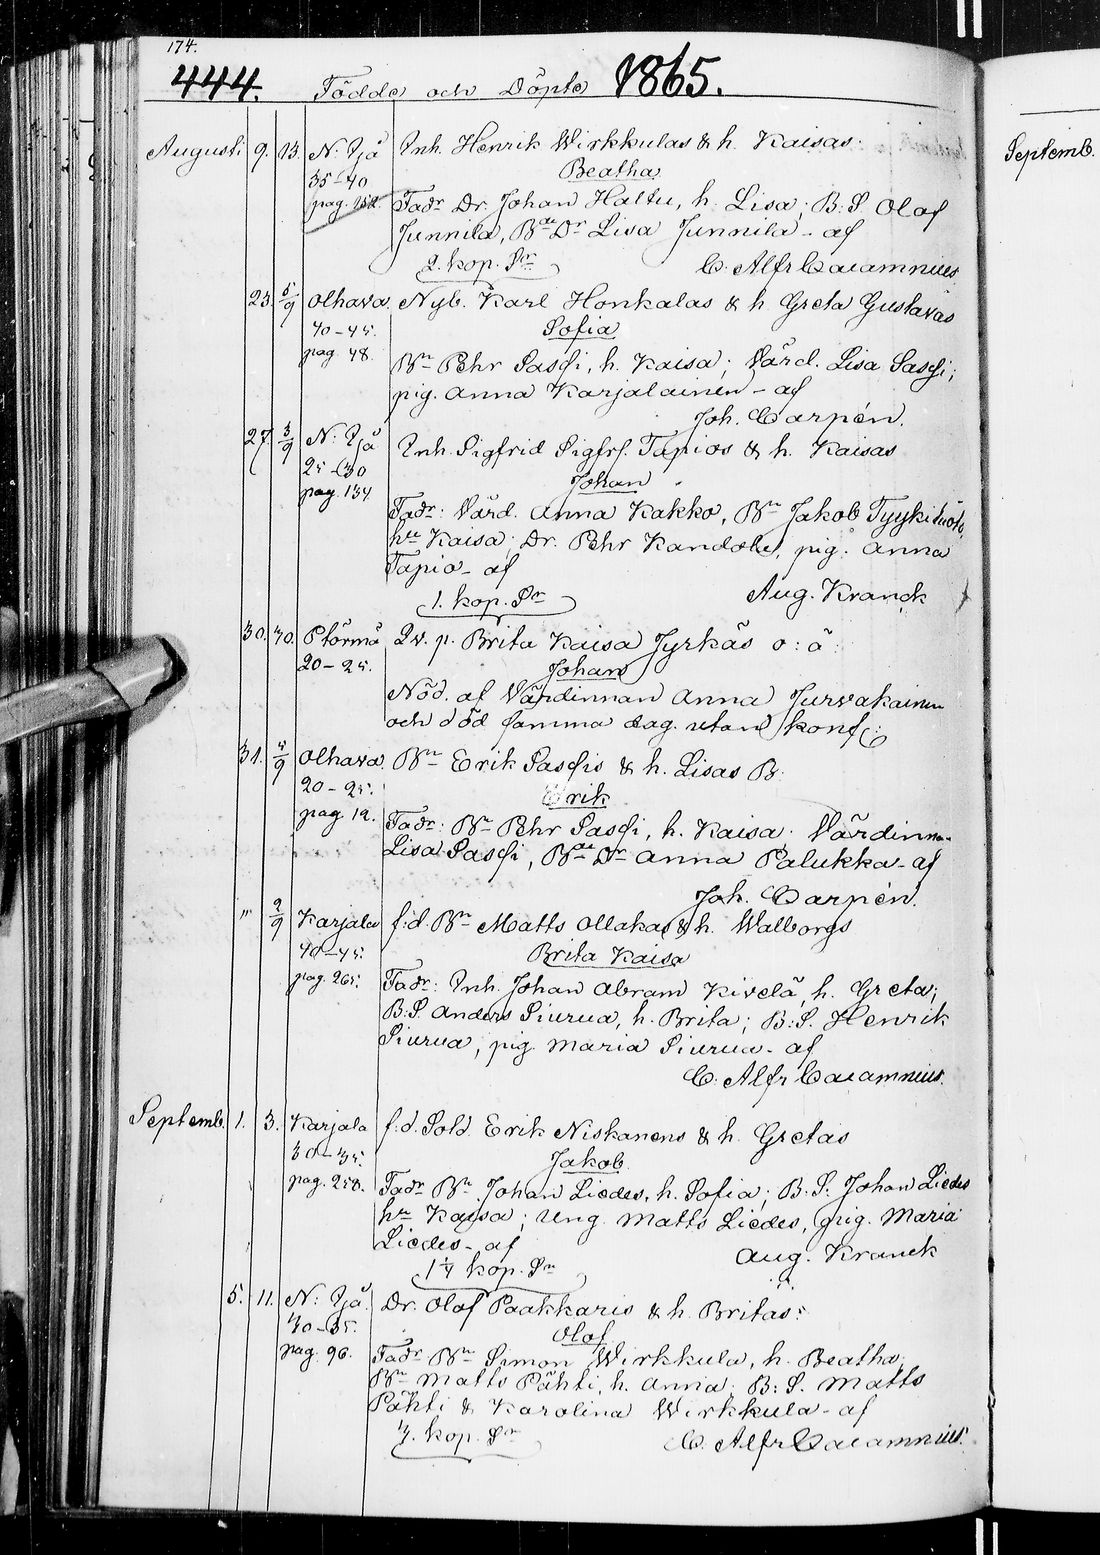 174.
444. Födde och Döpte 1865.
Augusti 9. 13. N: Ijå Inh. Henrik Wirkkulas & h. Kaisas:
35-40 Beatha
pag. 252. Fadr Dr. Johan Haltu, h. Lisa; B: S. Olof
Junnila, Bde Dr Lisa Junnila - af
2. kop. Sr C. Alfr Cajamnius
23. 5/9 Olhava Nyb. Karl Honkalas & h Greta Gustavas
40-45. Sofia
pag. 48. Bn Pehr Sassi, h. Kaisa; Värd. Lisa Sassi;
pig. Anna Karjalainen - af
Joh. Carpén.
27. 3/9 N: Ijå Inh. Sigfrid Sigfrs. Tapios & h. Kaisas
25-30 Johan
pag. 134 Fadr: Värd. Anna Kakko, Bn Jakob Tyyki
hu Kaisa; Dr. Pehr, pig. Anna
Tapio - af
1. kop. Sr Aug. Kranck
30. 30. Ptörmä Qv. p. Brita Kaisa Jyrkäs o: ä:
20-25. Johan
Nöd. af Värdinnan Anna Jurvakainen
och död samma dag utan konf:
31. 4/9 Olhava Bn Erik Sassis & h. Lisas B:
20-25. Erik
pag. 12. Fadr: Bn Pehr Sassi, h. Kaisa; Värdinna
Lisa Sassi, Bde Dr Anna Palukka - af
Joh. Carpén.
" 2/9 Karjala f: d. Bn Matts Ollakas & h. Walborgs
40-45. Brita Kaisa
pag. 265. Fadr: Inh. Johan Abram Kivelä, h. Greta;
B: S. Anders Siurua, h. Brita; B: S. Henrik
Siurua, pig. Maria Siurua - af
C. Alfr Cajamnius.
Septemb. 1. 3. Karjala f: d. Sold. Erik Niskanens & h. Gretas
30-35. Jakob
pag. 258. Fadr Bn Johan Liedes, h. Sofia; B: S. Johan Liedes
hu Kajsa; Ung. Matts Liedes, pig. Maria
Liedes - af Aug. Kranck
1 1/4 kop. Sr
5. 11. N: Ijå Dr. Olof Paakkaris & h. Britas:
30-35. Olof
pag. 96. Fadr Bn Simon Wirkkula, h. Beatha;
Bn Matts Pähti, h. Anna; B: S. Matts
Pähti & Karolina Wirkkula - af
kop. Sr C. Alfr Cajamnius.
Septemb.